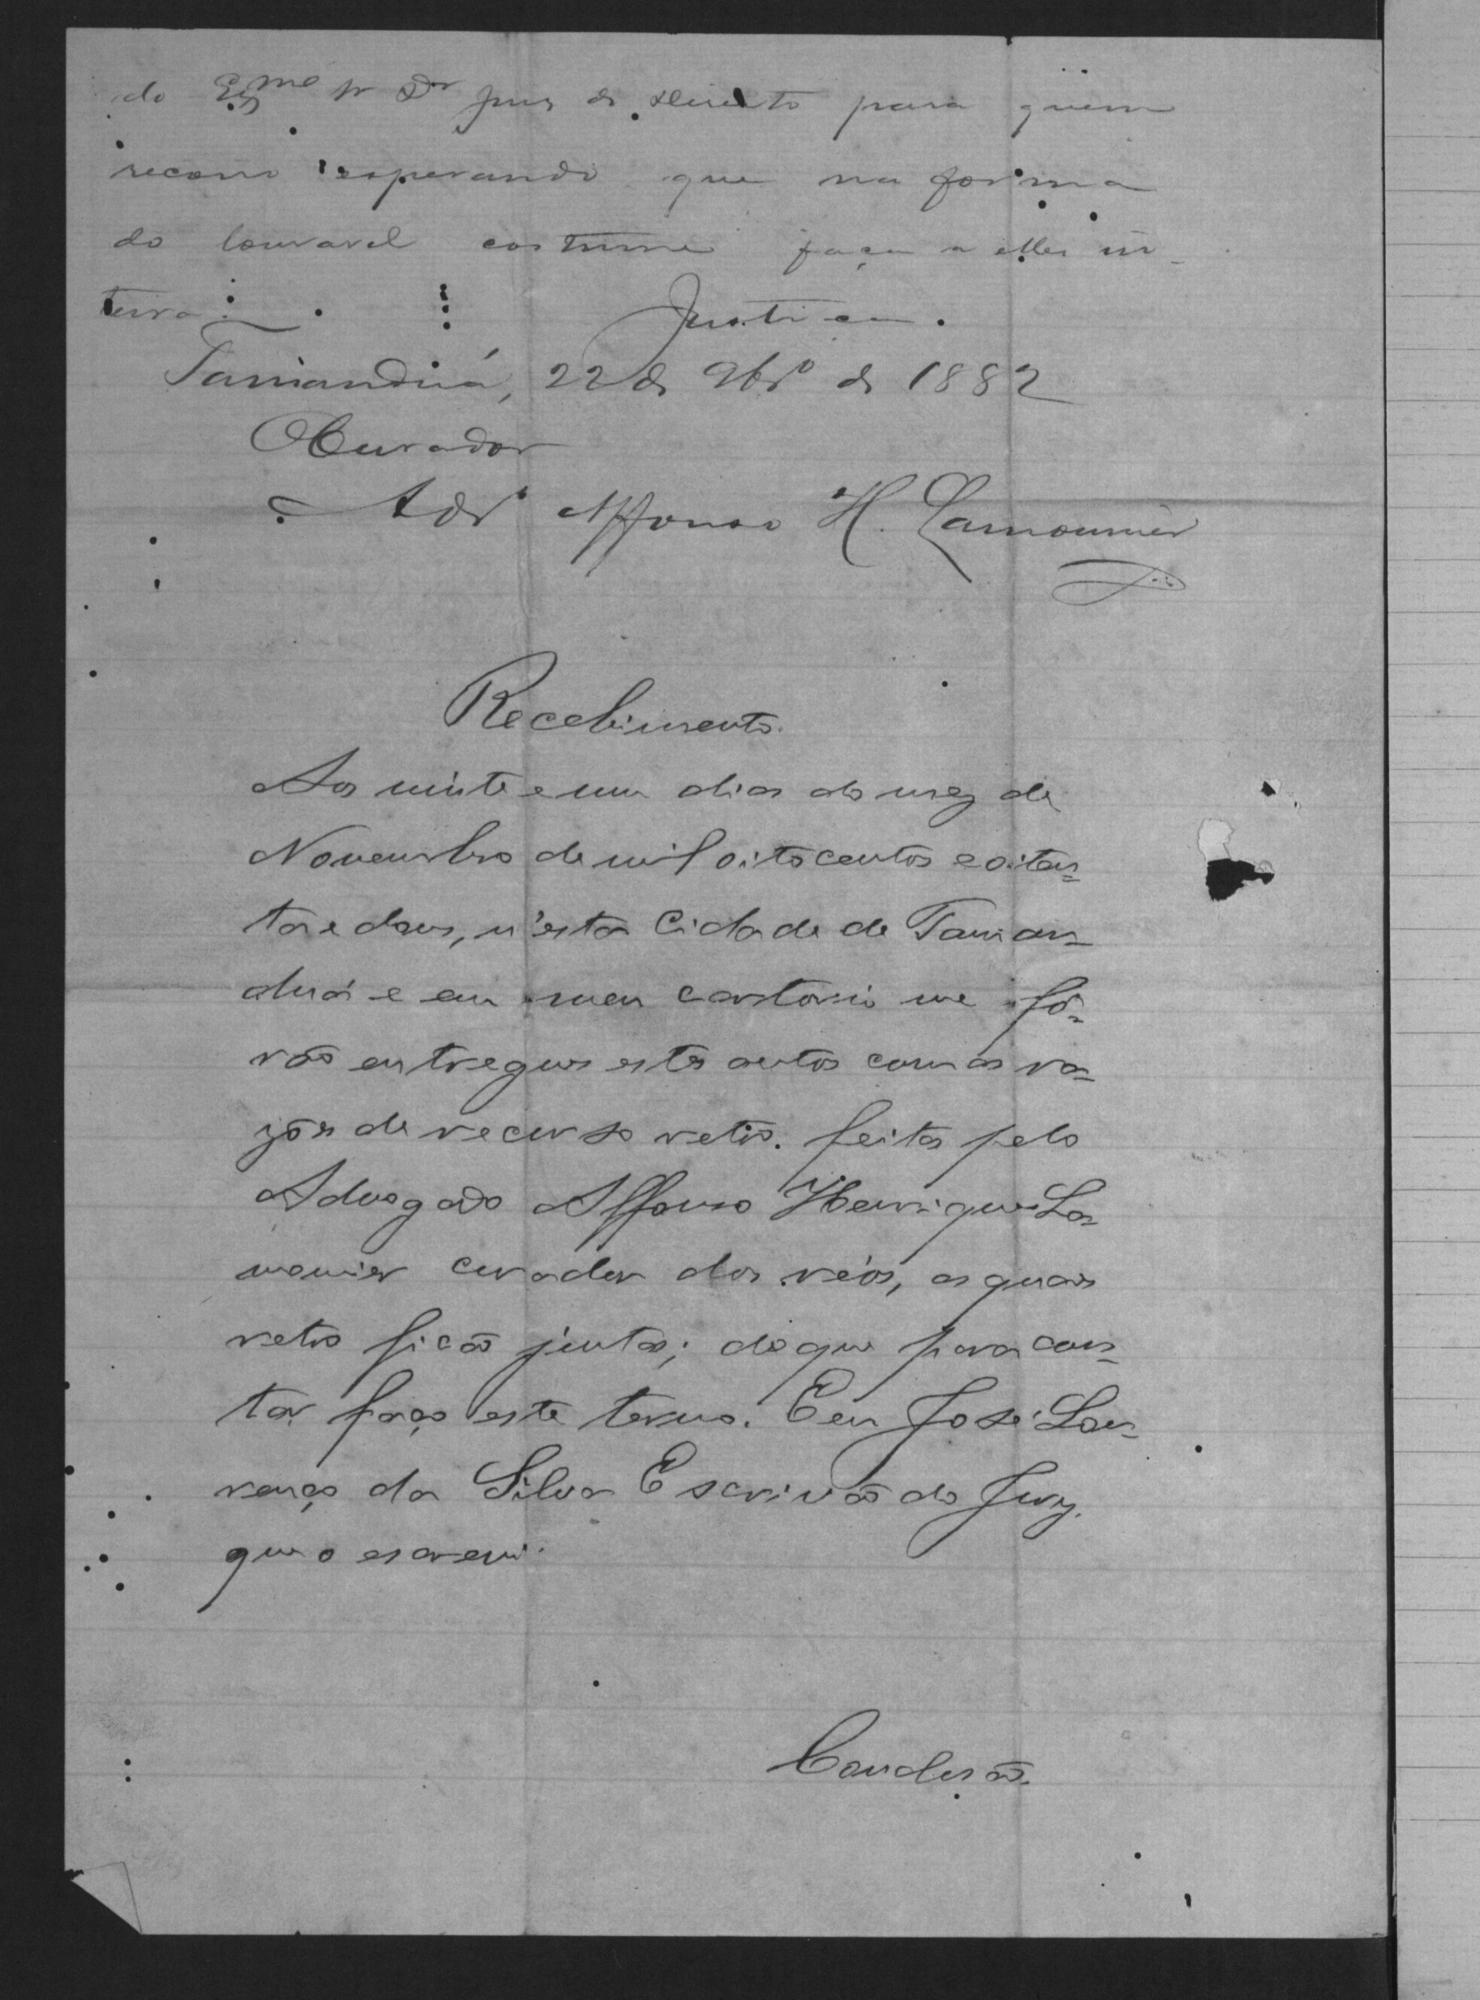 do Exmo Sr Dr Juiz de Direito para quem
recorre esperando que na forma
do louvavel costume faça a elles in-
teira
Justiça.
Tamanduá, 22 de 9bro de 1882
O Curador
Adro Affonso H. Lamounier
Recebimento.
Aos vinte e um dias do mez de
Novembro de mil oitocentos e oiten-
ta e dous, n'esta Cidade de Taman-
duá e em meu cartorio me fô-
rão entregues estes autos com as ra-
zões de recurso retro. feitas pelo
Advogado Affonso Henriques La-
mounier curador dos réos, as quaes
retro ficão juntas; do que para cons-
tar faço este termo. Eeu José Lou-
renço da Silva Escrivão do Jury.
que o escrevi.
Conclusão.